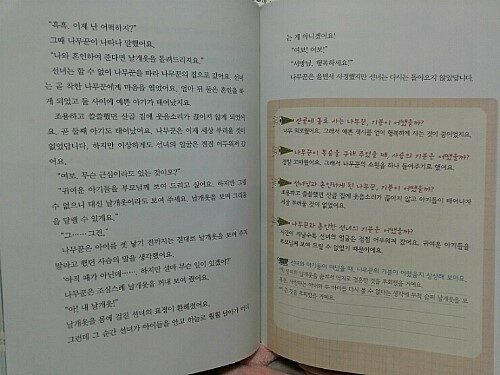 "흑흑, 이제 난 어떡하지?"
그때 나무꾼이 나타나 말했어요.
"나와 혼인하여 준다면 날개옷을 돌려드리지요."
선녀는 할 수 없이 나무꾼을 따라 나무꾼의 집으로 갔어요. 선녀
는 곧 착한 나무꾼에게 마음을 열었어요. 얼마 뒤 둘은 혼인을 하
게 되었고 둘 사이에 예쁜 아기가 태어났지요.
조용하고 쓸쓸했던 산골 집에 웃음소리가 끊이지 않게 되었어
요. 곧 둘째 아기도 태어났어요. 나무꾼은 이제 세상 부러울 것이
없답니다. 하지만 이상하게도 선녀의 얼굴은 점점 어두워져 갔
어요.
"여보, 무슨 근심이라도 있는 것이오?"
"귀여운 아기들을 부모님께 보여 드리고 싶어요. 하지만 그럴
수 없으니 대신 날개옷이라도 보여 주세요. 날개옷을 보며 그리움
을 달랠 수 있게요."
"그……그건."
나무꾼은 아이를 셋 낳기 전까지는 절대로 날개옷을 보여 주지
말라고 했던 사슴의 말을 생각했어요.
'아직 때가 아닌데……. 하지만 설마 무슨 일이 있겠어?'
나무꾼은 조심스레 날개옷을 꺼내 보여 줬어요.
"아! 내 날개옷!"
날개옷을 몸에 걸친 선녀의 표정이 환해졌어요.
그런데 그 순간 선녀가 아이들을 안고 하늘로 훨훨 날아가 버리
는 게 아니겠어요!
"여보! 여보!"
"서방님, 행복하세요!"
나무꾼은 울면서 사정했지만 선녀는 다시는 돌아오지 않았답니다.
산골에 홀로 사는 나무꾼, 기분이 어땠을까?
너무 외로웠어요. 그래서 예쁜 색시를 얻어 행복하게 사는 것이 꿈이었지요.
나무꾼이 목숨을 구해 주었을 때, 사슴의 기분은 어땠을까?
정말 고마웠어요. 그래서 나무꾼의 소원을 하나 들어주기로 했어요.
선녀님과 혼인하게 된 나무꾼, 기분이 어땠을까?
조용하고 쓸쓸했던 산골 집에 웃음소리가 끊이지 않고 아기들이 태어나자
세상 부러울 것이 없었어요.
나무꾼과 혼인한 선녀의 기분은 어땠을까?
시간이 지날수록 선녀의 얼굴은 점점 어두워져 갔어요. 귀여운 아기들을
부모님께 보여 드릴 수 없었기 때문이에요.
선녀와 아기들이 떠났을 때, 나무꾼의 기분이 어땠을지 상상해 보아요.